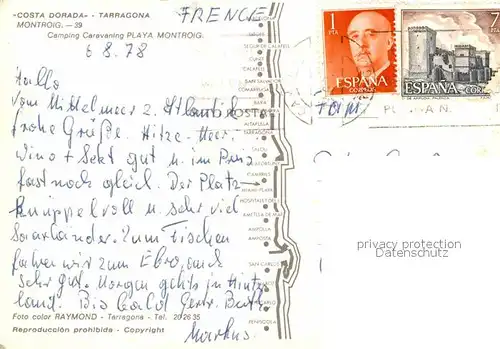 "COSTA DORADA" - TARRAGONA
MONTROIG. — 39
Camping Caravaning PLAYA MONTROIG.
6 8.78
Hallo
Vom Mittelmeer z. Atlantik
frohe Grüße. Hitze - Meer
Wino + Sekt gut u. im Preis
fast noch gleich. Der Platz
Knüppelvoll u. sehr viel
Saarländer. Zum Fischen
fahren wir zum Ebro, auch
sehr gut. Morgen gehts in Hinter
land. Bis bald Gertr. Berth
Markus.
Foto color RAYMOND - Tarragona - Tel. 20 26 35
Reproducción prohibida - Copyright
SEGUR DE CALAFELL
CUNIT
CALAFELL
SAN SALVADOR
COSTA
ALTAFULLA
TARRAGONA
SALOU
CAMBRILS
MIAMI-PLAYA
HOSPITALET DEL
AMETLLA DE MAR
AMPOLLA
AMPOSTA
SAN CARLOS
PEÑISCOLA
1
PTA
ESPAÑA
CORREOS
ESPAÑA
CORREOS
privacy protection
Datenschutz